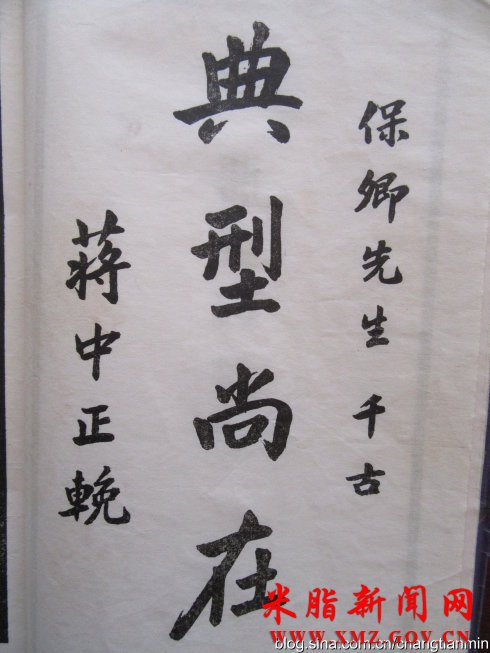 保卿先生千古
典型尚在
蒋中正輓
米脂新闻网
WWW.XMZ.GOV.CN
blog.sina.com.cn/changtianmin